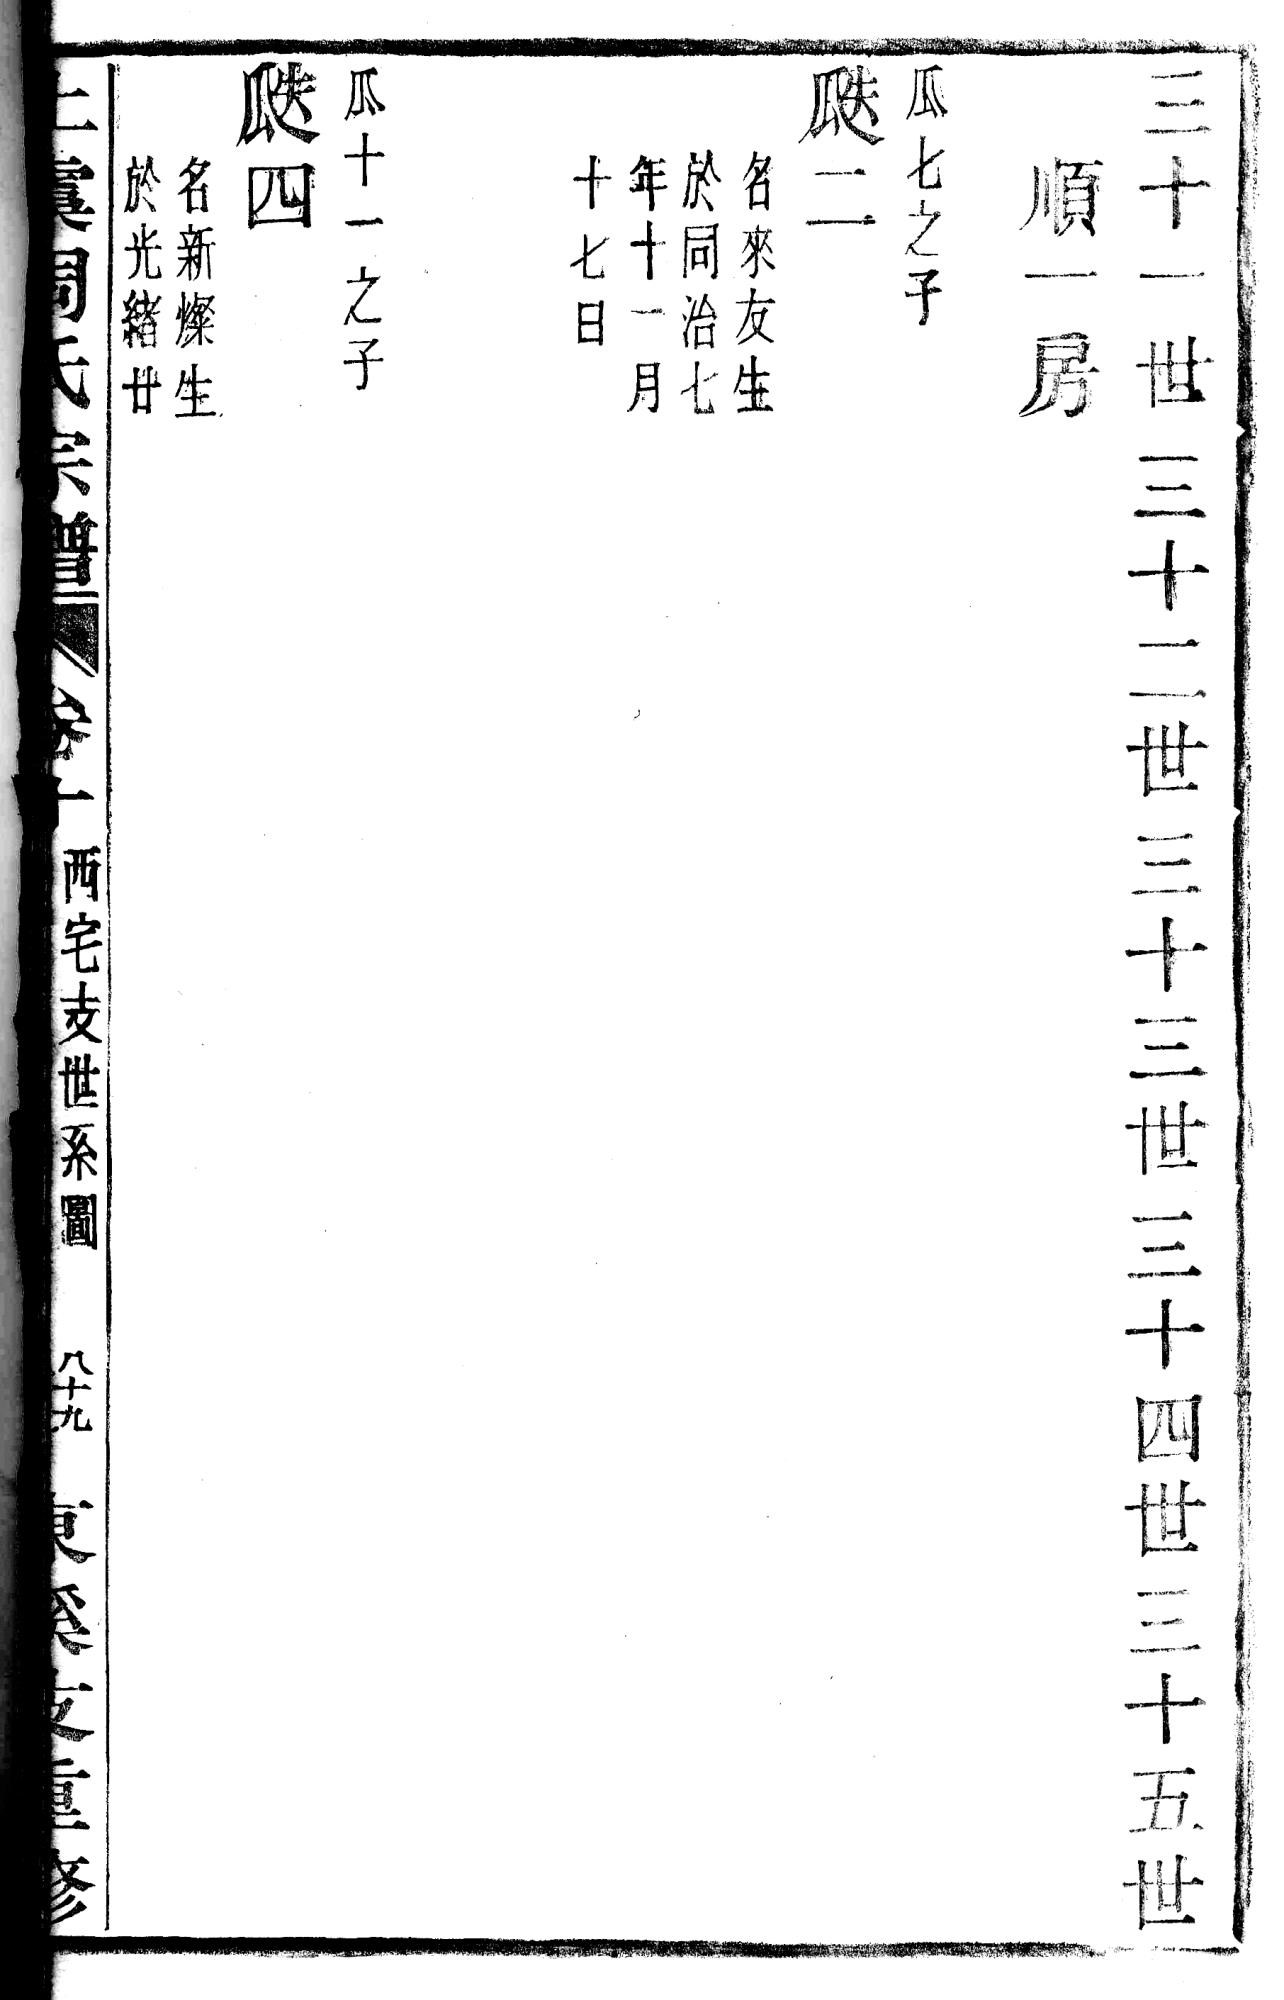 三十一世 三十二世 三十三世 三十四世 三十五世
順一房
瓜七之子
瓞二
名來友生
於同治七
年十一月
十七日
瓜十一之子
瓞四
名新燦生
於光緒廿
上虞周氏宗譜 卷十 西宅支世系圖 八十九 東溪支重修